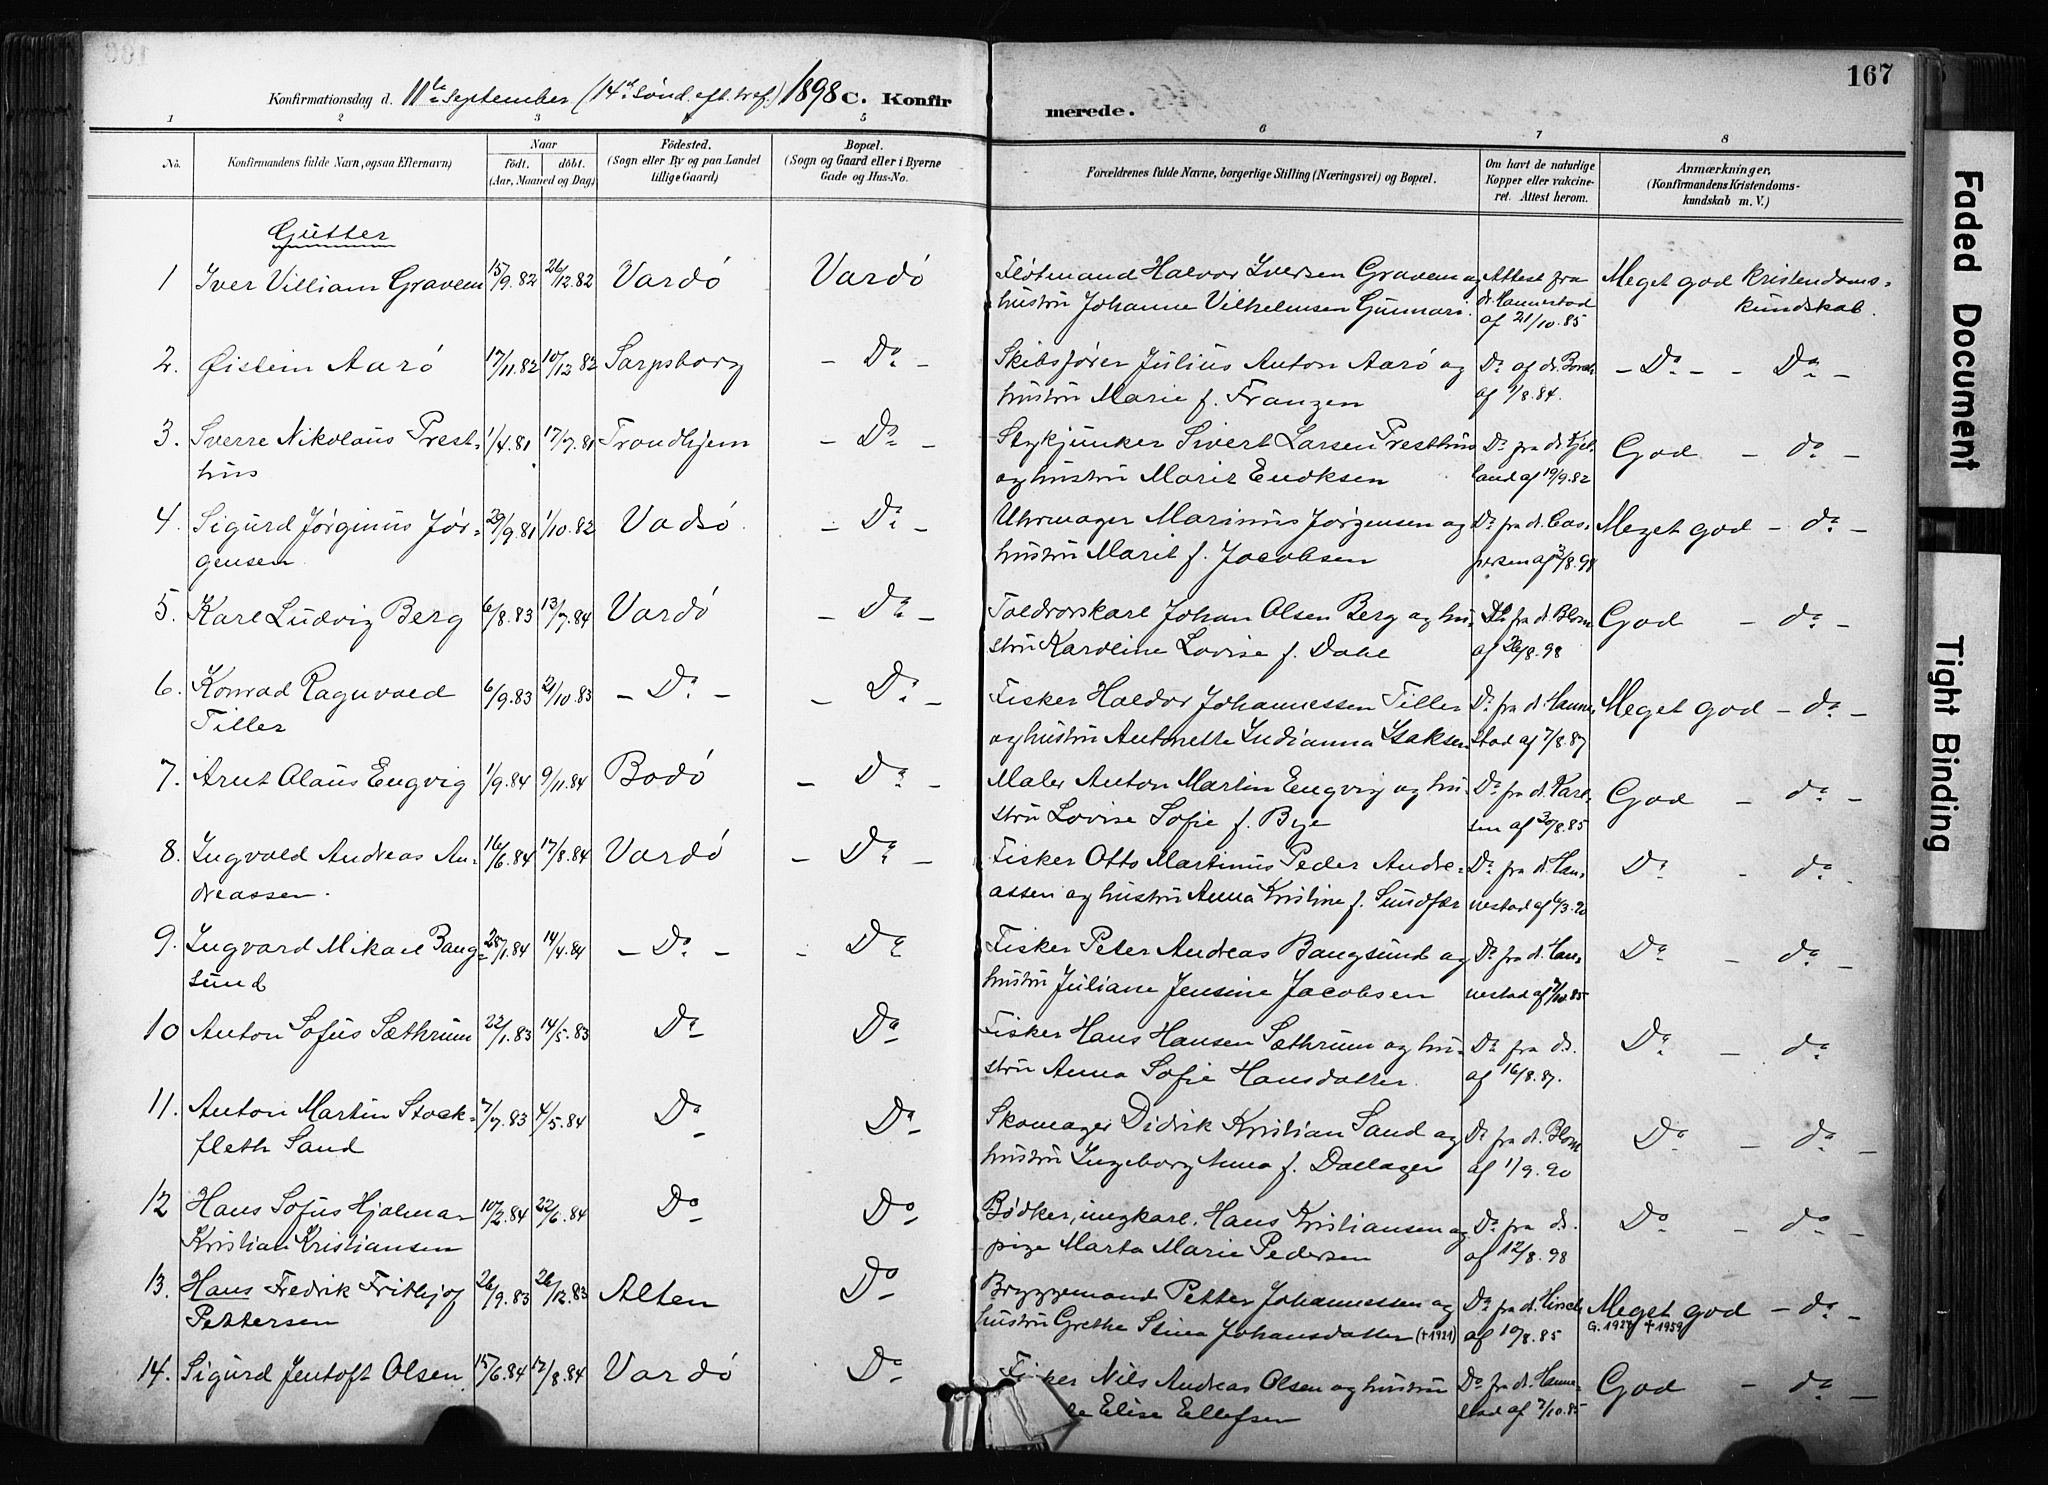 167
Konfirmationsdag d. 11te September (14de Sønd. eft. tref.) 1898 C. Konfir merede.
1 2 3 4 5 6 7 8
No.
Konfirmandens fulde Navn, ogsaa Efternavn)
Naar
födt. döbt.
(Aar, Maaned og Dag)
Födested.
(Sogn eller By og paa Landet
tillige Gaard)
Bopæl.
(Sogn og Gaard eller i Byerne
Gade og Hus-No.
Forældrenes fulde Navne, borgerlige Stilling (Næringsvei) og Bopæl.
Om havt de naturlige
Kopper eller vakcine-
ret. Attest herom.
Anmærkninger.
(Konfirmandens Kristendoms-
kundskab m. V.)
Gutter
1 Iver Villiam Gravem 15/9.82 26/12.82 Vardö Vardö Flötmand Halvor Iversen Gravem og Attest fra Meget god Kristendoms-
hustru Johanne Vilhelmsen Gunnari. dr. Hannestad kundskab.
af 21/10.85
2. Øistein Aarö 17/11.82 10/12.82 Sarpsborg - Do - Skibsförer Julius Anton Aarö og Do af dr. - Do - - Do -
hustru Marie f. Franzen af 1/8.84.
3. Sverre Nikolaus Prest- 1/4.81 17/7.81 Trondhjem - Do - Stykjunker Sivert Larsen Presthus Do fra dr. Kjel- God - do -
hus og hustru Marit Eriksen land af 19/9.82
4. Sigurd Jørginus Jør- 29/9.81 1/10.82 Vadsö. - Do - Uhrmager Marinus Jørgensen og Do fra dr. Cas- Meget god - do -
gensen hustru Marit f. Jacobsen persen af 3/8.98
5. Karl Ludvig Berg 6/8.83 13/7.84 Vardö - Do - Toldrorskarl Johan Olsen Berg og hu- Do fra dr. Blom God - do -
stru Karoline Lovise f. Dahl af 26/8.98
6. Konrad Ragnvald 6/9.83 21/10.83 - Do - - Do - Fisker Haldor Johannessen Tiller Do fra dr. Hanne- Meget god - do -
Tiller og hustru Antonette Indianna Isaksen stad af 7/8.87
7. Arnt Olaus Engvig 1/9.84 9/11.84 Bodö - Do - Maler Anton Martin Engvig og hu- Do fra dr. Karl- God - do -
stru Lovise Sofie f. Bye sen af 30/8.85
8. Ingvald Andreas An- 16/6.84 17/8.84 Vardö - Do - Fisker Otto Martinus Peder Andre- Do fra dr. Han- Do - do -
dreassen. assen og hustru Anna Kristine f. Sundfær nestad af 6/3.90
9. Ingvard Mikael Bang- 25/1.84 14/4.84 - Do - - Do Fisker Peter Andreas Bangsund og Do fra dr. Han- Do - do -
sund hustru Juliane Jensine Jacobsen nestad af 7/10.85
10 Anton Sofus Sæthrum 22/1.83 14/5.83 Do Do Fisker Hans Hansen Sæthrum og hu- Do fra dr. Do - do -
stru Anna Sofie Hansdatter. af 16/8.87.
11. Anton Martin Stock- 7/7.83 4/5.84 Do Do Skomager Didrik Kristian Sand og Do fra dr. Blom Do - do -
fleth Sand hustru Ingeborg Anna f. Dallager af 1/9.90
12 Hans Sofus Hjalmar 10/2.84 22/6.84 Do Do Bødker, ungkarl, Hans Kristiansen og Do fra dr. Do - do -
Kristian Kristiansen pige Marta Marie Pedersen af 12/8.98
13. Hans Fredrik Frithjof 26/9.83 26/12.83 Alten Do Bryggemand Petter Johannessen og Do fra dr. Hirsch Meget god - do -
Pettersen hustru Grethe Stina Johansdatter (+1921) af 10/8.85 G. 1927 +1959
14. Sigurd Jentoft Olsen 15/6.84 17/8.84 Vardö Do Fisker Nils Andreas Olsen og hustru Do fra dr. Hanne- God - do -
Elise Ellefsen stad af 7/10.85
Faded Document
Tight Binding